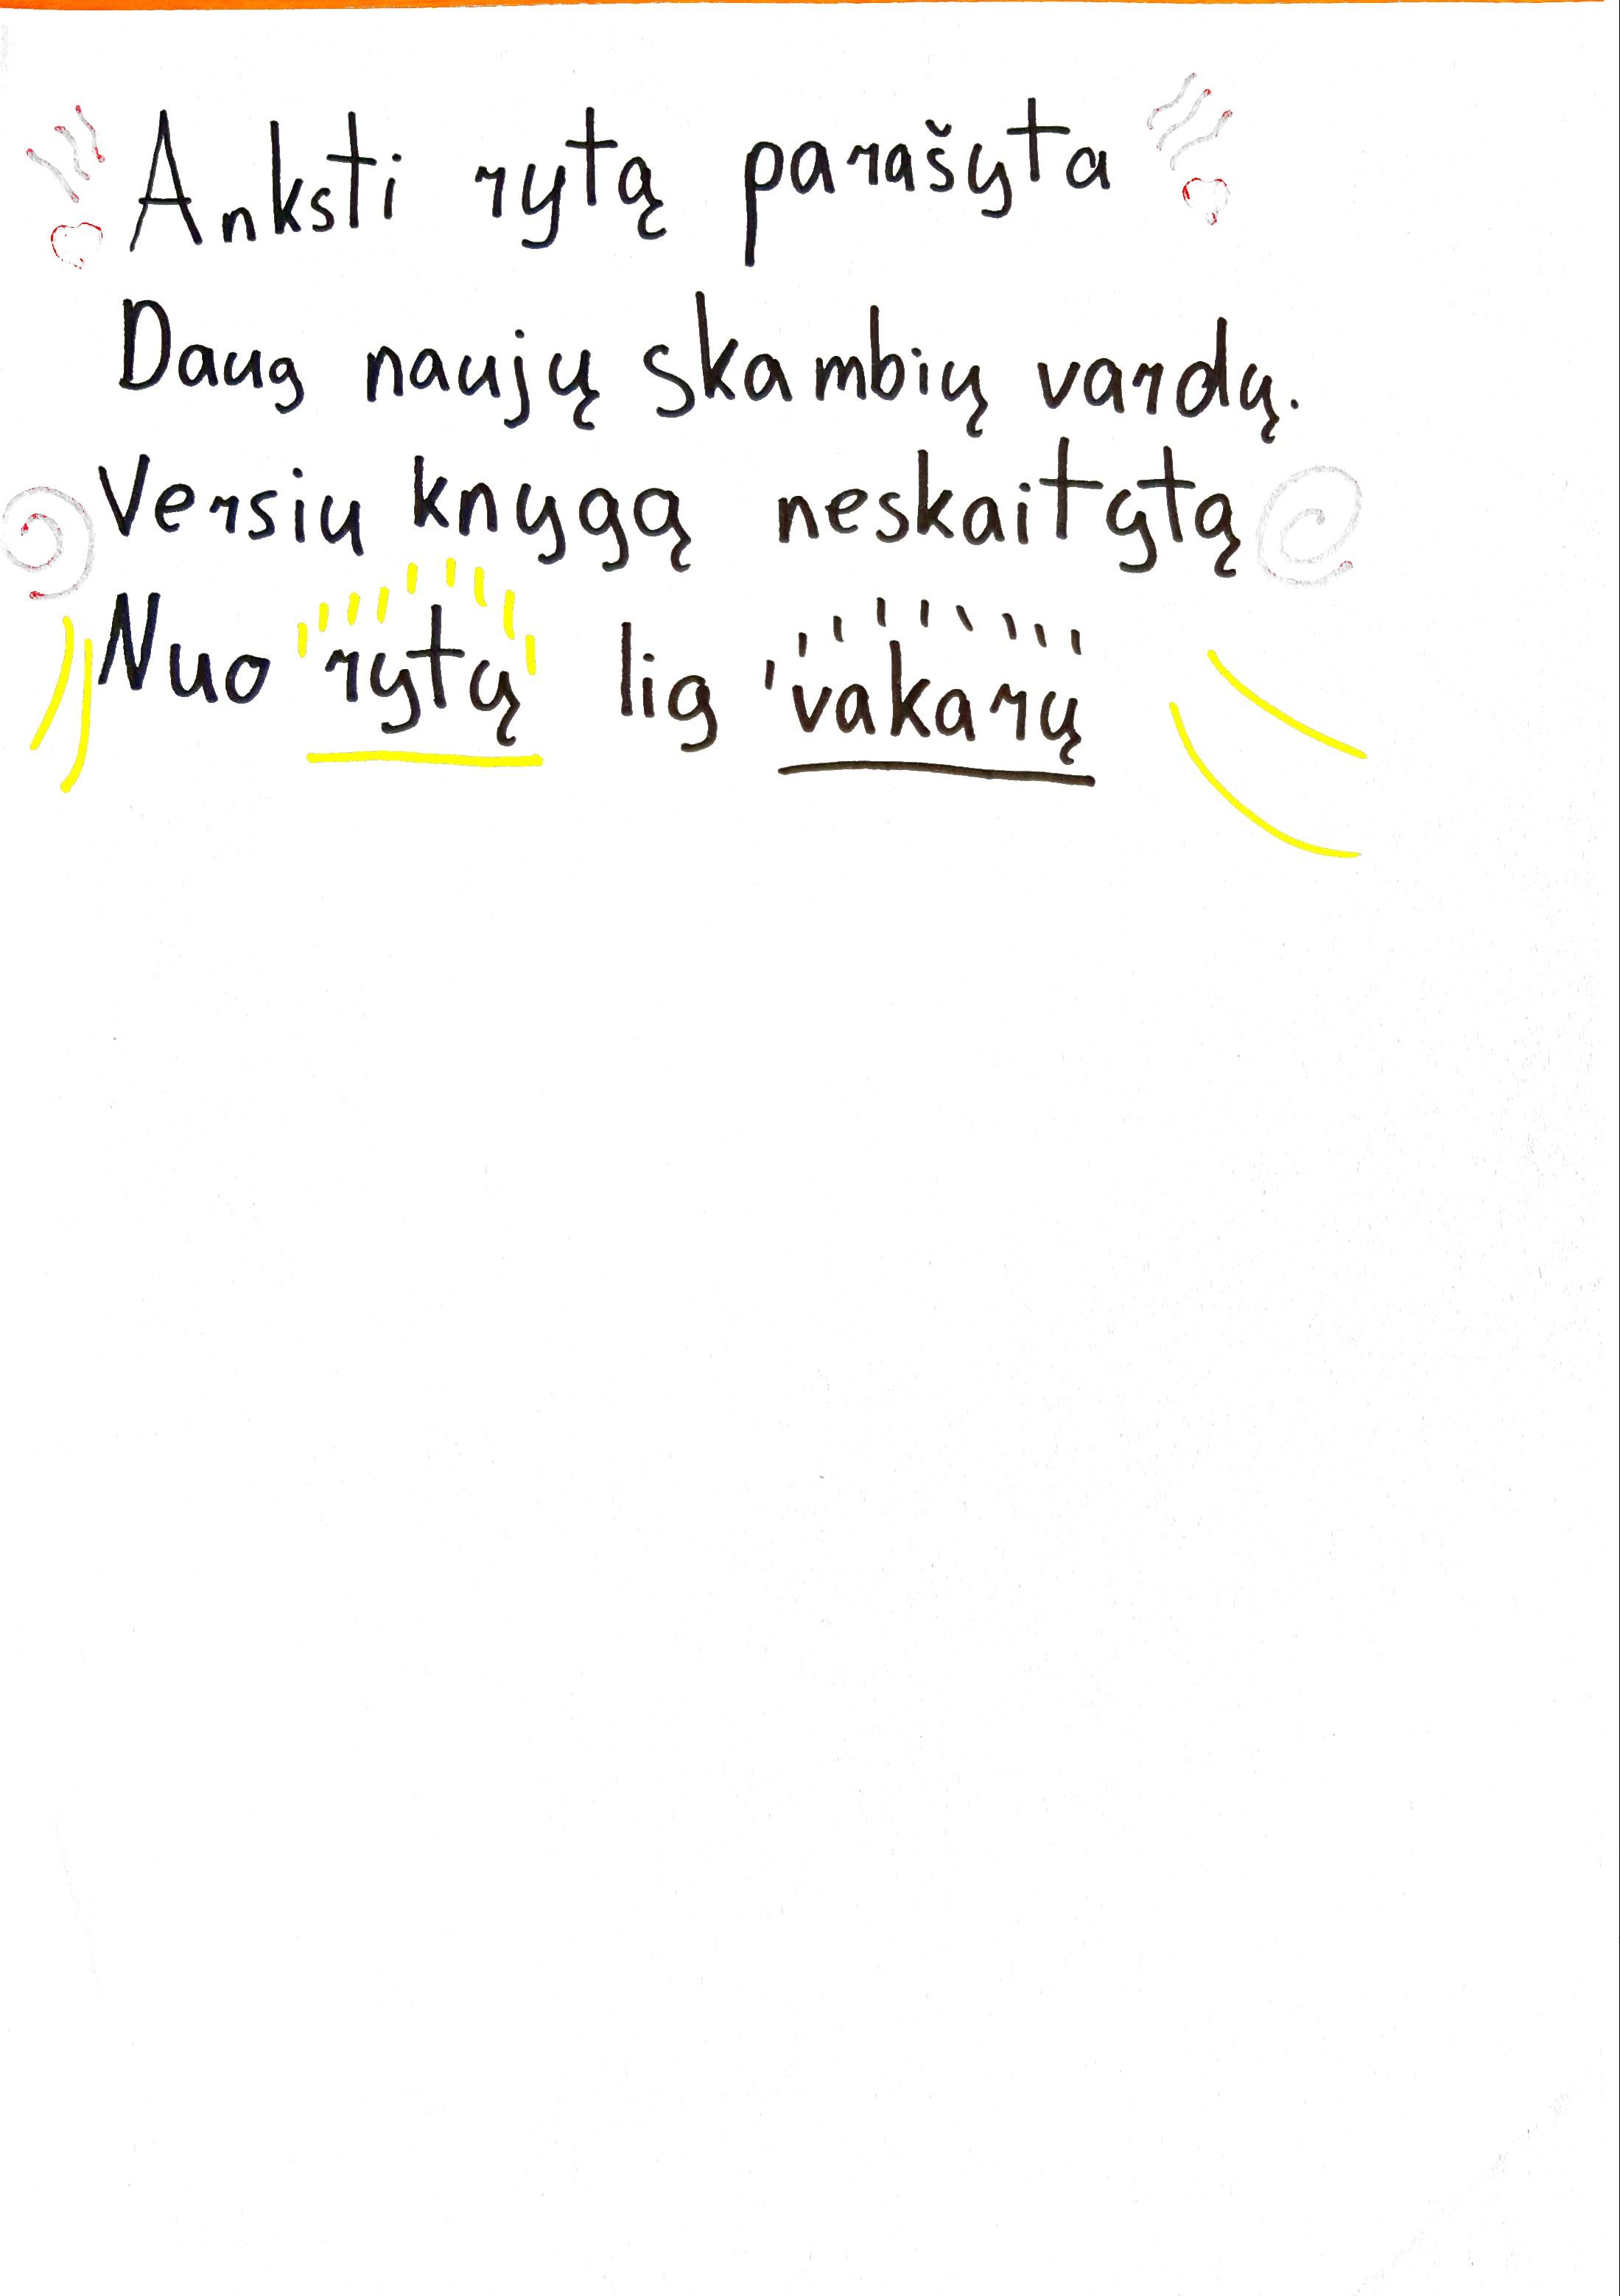 Anksti rytą parašyta
Daug naujų skambių vardų.
Versiu knygą neskaitytą
Nuo rytų lig vakarų